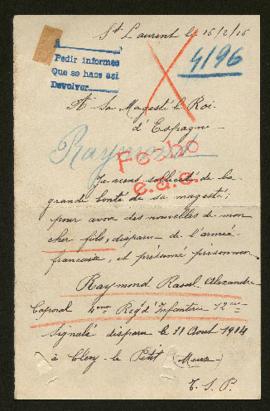 St Laurent le 16/2/16
A
Pedir informes
Que se hace así
Devolver
4196
A Sa Magesté le Roi
d'Espagne
Raymond
Fecho
Je viens solliciter de la
grande bonté de sa magesté;
pour avoir des nouvelles de mon
cher fils, disparu de l'armée
française, et présumé prisonnier
Raymond Raoul Alexandre
Caporal 4me Regt d'Infanterie 12me Cie
Signalé disparu le 31 Aout 1914
à Cléry le Petit (Meuse
T. S. P.